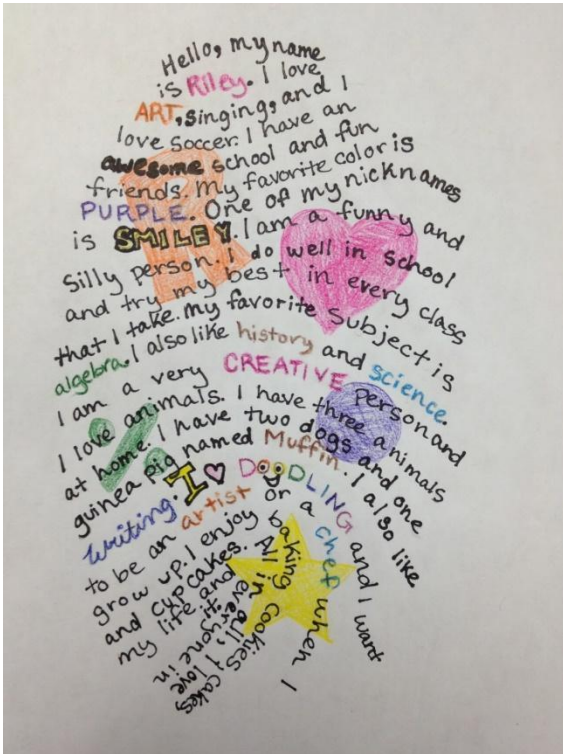 Hello, my name
is Riley. I love
ART, singing, and I
love soccer. I have an
awesome school and fun
friends. My favorite color is
PURPLE. One of my nicknames
is SMILEY. I am a funny and
silly person. I do well in school
and try my best in every class
that I take. My favorite subject is
algebra. I also like history and science.
I am a very CREATIVE person and
I love animals. I have three animals
at home. I have two dogs and one
guinea pig named Muffin. I also like
writing. I ♥ DOODLING and I want
to be an artist or a chef when I
grow up. I enjoy baking cookies, cakes,
and cupcakes. All in all, I love
my life and everyone in
it.